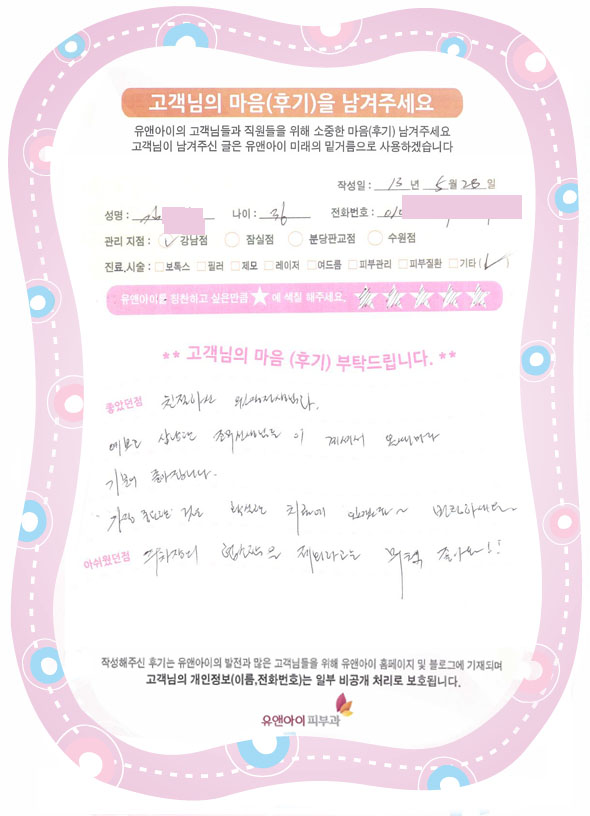 고객님의 마음(후기)을 남겨주세요
유앤아이의 고객님들과 직원들을 위해 소중한 마음(후기) 남겨주세요
고객님이 남겨주신 글은 유앤아이 미래의 밑거름으로 사용하겠습니다
작성일 : 13 년 5 월 28 일
성명 : 김 나이 : 36 전화번호 : 010
관리 지점 : 강남점 잠실점 분당판교점 수원점
진료,시술 : 보톡스 필러 제모 레이저 여드름 피부관리 피부질환 기타 ( )
유앤아이를 칭찬하고 싶은만큼 ★ 에 색칠 해주세요.
** 고객님의 마음 (후기) 부탁드립니다. **
좋았던점 친절하신
예쁘고 상냥한 선생님들 이 계셔서 올때마다
기분이 좋아집니다.
가장 중요한 것은 확실한 치료에 ~
아쉬웠던점 주차장이 협소함을 제외하고는 무척 좋아요!!
작성해주신 후기는 유앤아이의 발전과 많은 고객님들을 위해 유앤아이 홈페이지 및 블로그에 기재되며
고객님의 개인정보(이름,전화번호)는 일부 비공개 처리로 보호됩니다.
유앤아이피부과